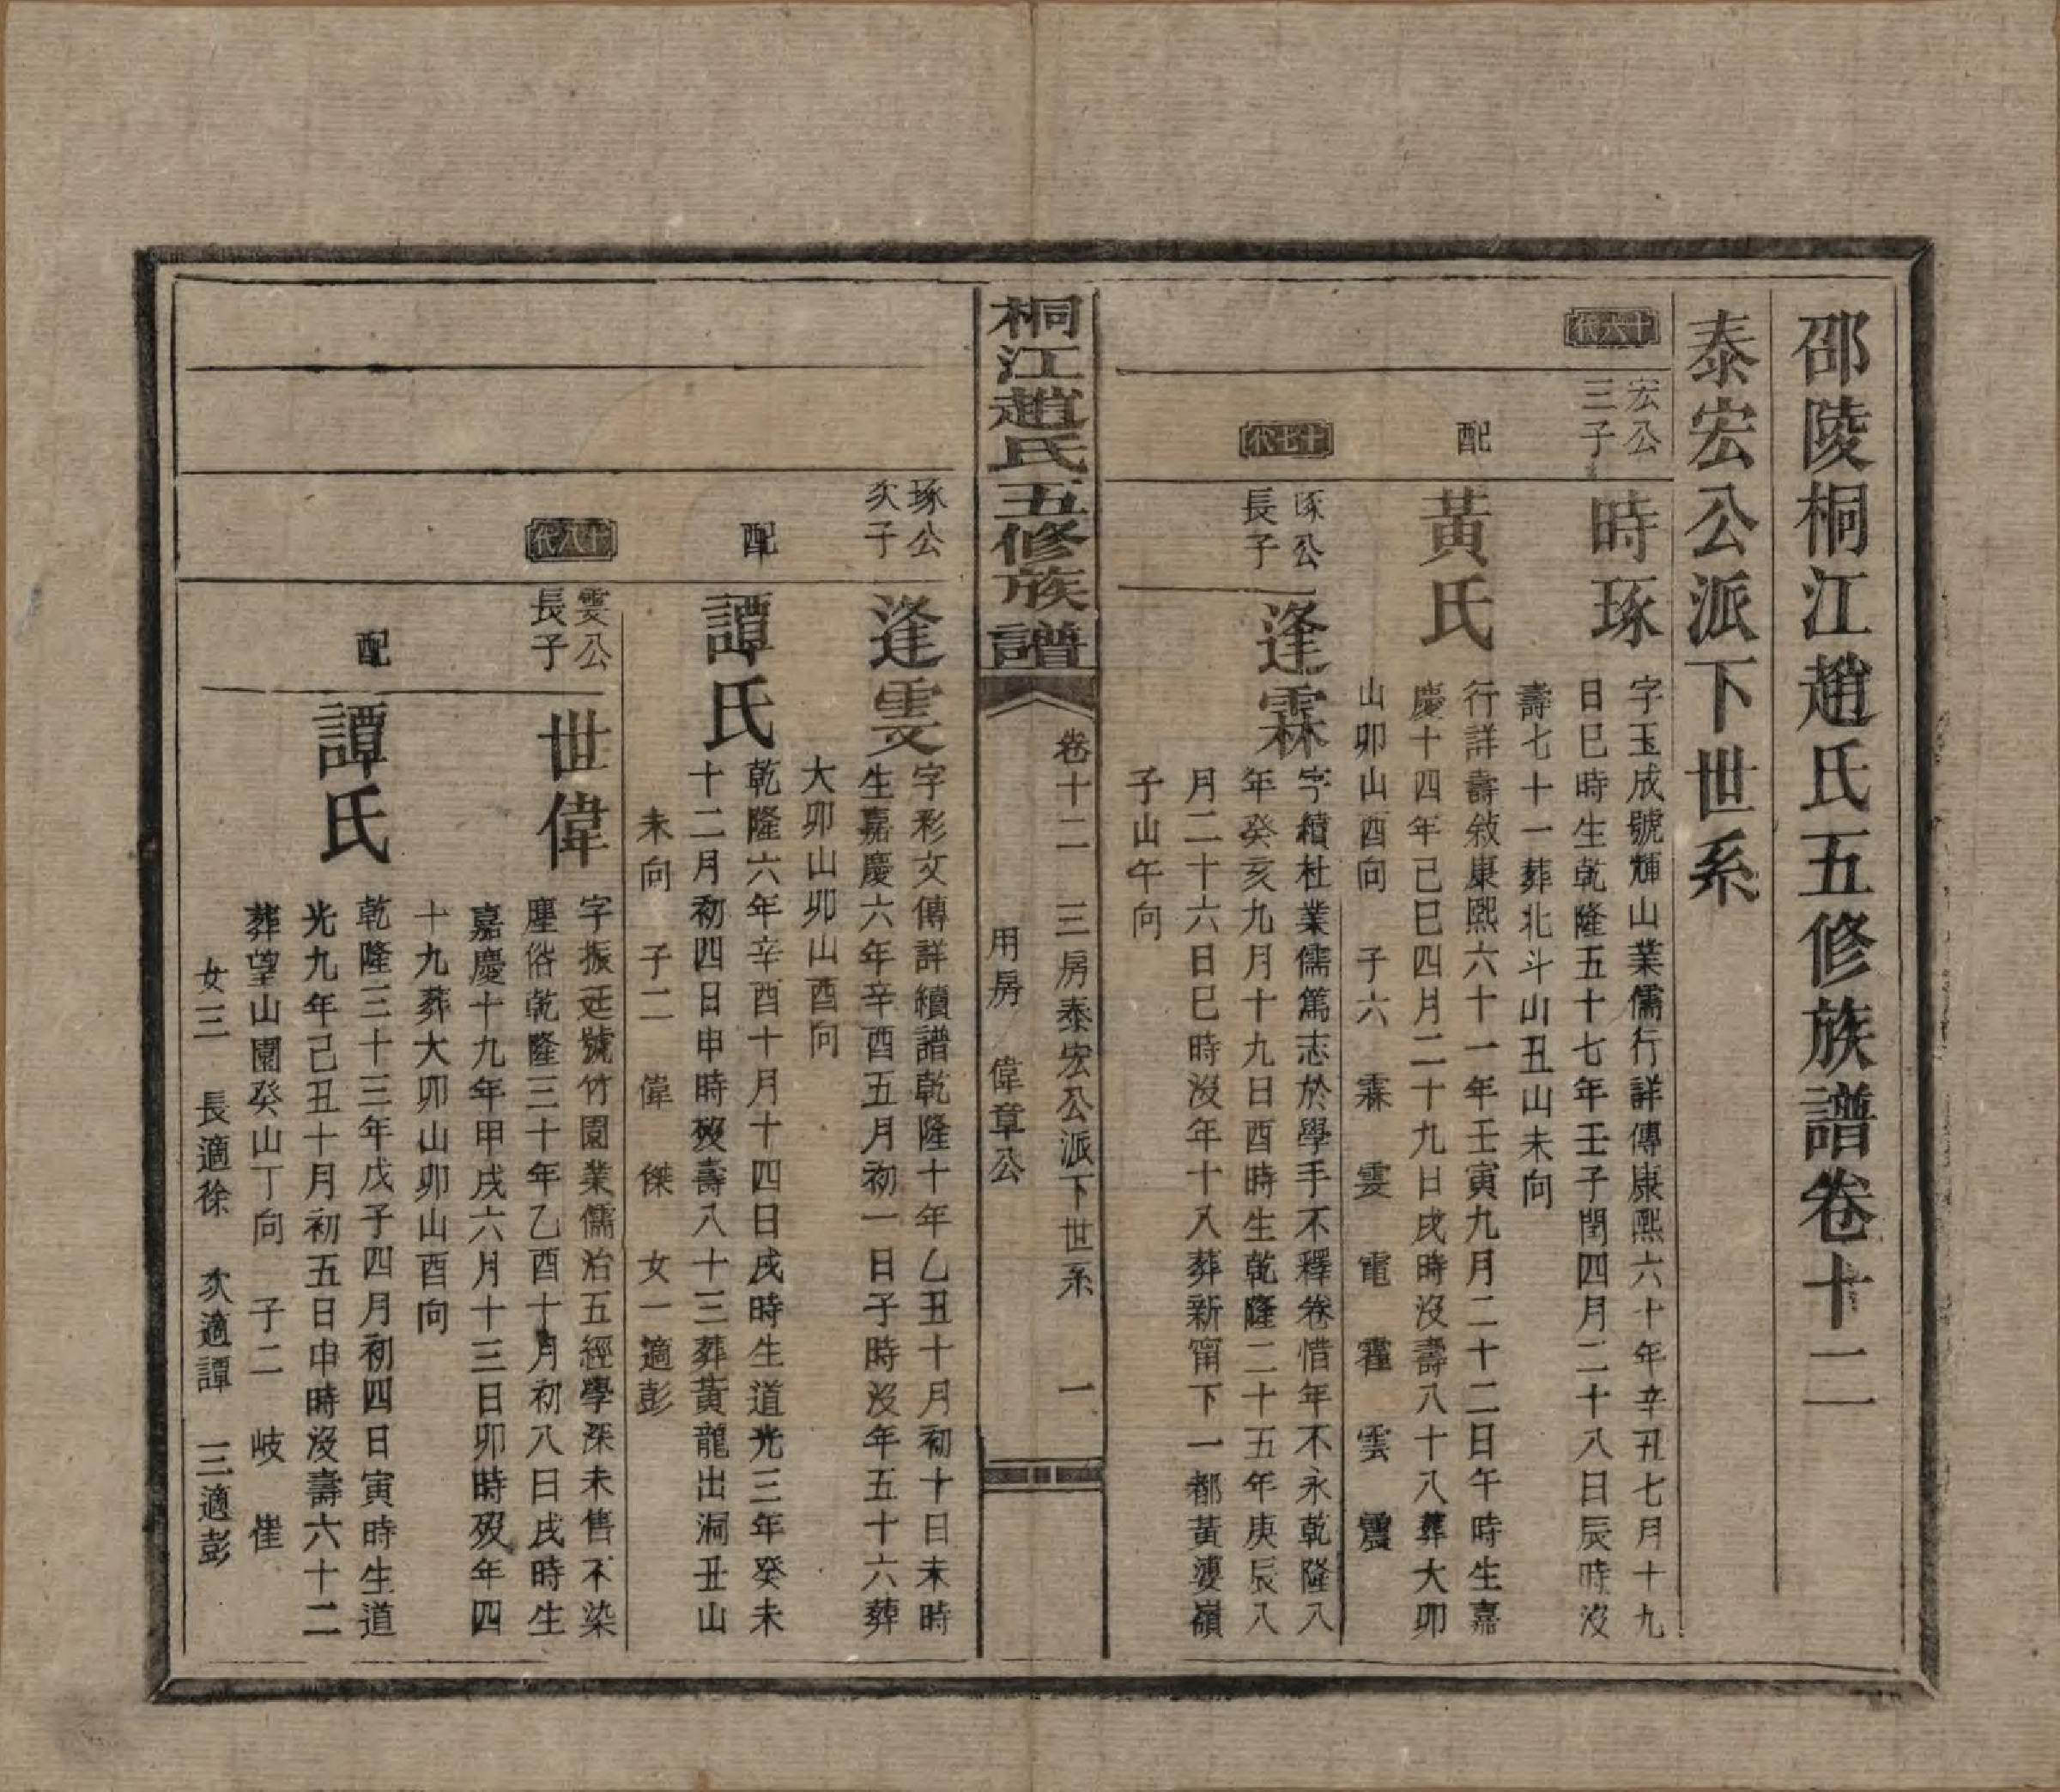 邵陵桐江趙氏五修族譜卷十二
泰宏公派下世系
十六代
宏公
三子
時琢
字玉成號輝山業儒行詳傳康熙六十年辛丑七月十九
日巳時生乾隆五十七年壬子閏四月二十八日辰時沒
壽七十一葬北斗山丑山未向
配
黃氏
行詳壽敘康熙六十一年壬寅九月二十二日午時生嘉
慶十四年己巳四月二十九日戌時沒壽八十八葬大卯
山卯山酉向　子六　霖　雯　電　霍　雲　震
十七代
琢公
長子
逢霖
字續杜業儒篤志於學手不釋卷惜年不永乾隆八
年癸亥九月十九日酉時生乾隆二十五年庚辰八
月二十六日巳時沒年十八葬新甯下一都黃婆嶺
子山午向
桐江趙氏五修族譜
卷十二　三房泰宏公派下世系　一
用房　偉章公
琢公
次子
逢雯
字彩文傳詳續譜乾隆十年乙丑十月初十日未時
生嘉慶六年辛酉五月初一日子時沒年五十六葬
大卯山卯山酉向
配
譚氏
乾隆六年辛酉十月十四日戌時生道光三年癸未
十二月初四日申時歿壽八十三葬黃龍出洞丑山
未向　子二　偉　傑　女一適彭
十八代
雯公
長子
世偉
字振廷號竹園業儒治五經學深未售不染
塵俗乾隆三十年乙酉十月初八日戌時生
嘉慶十九年甲戌六月十三日卯時歿年四
十九葬大卯山卯山酉向
配
譚氏
乾隆三十三年戊子四月初四日寅時生道
光九年己丑十月初五日申時沒壽六十二
葬望山園癸山丁向　子二　岐　崔
女三　長適徐　次適譚　三適彭